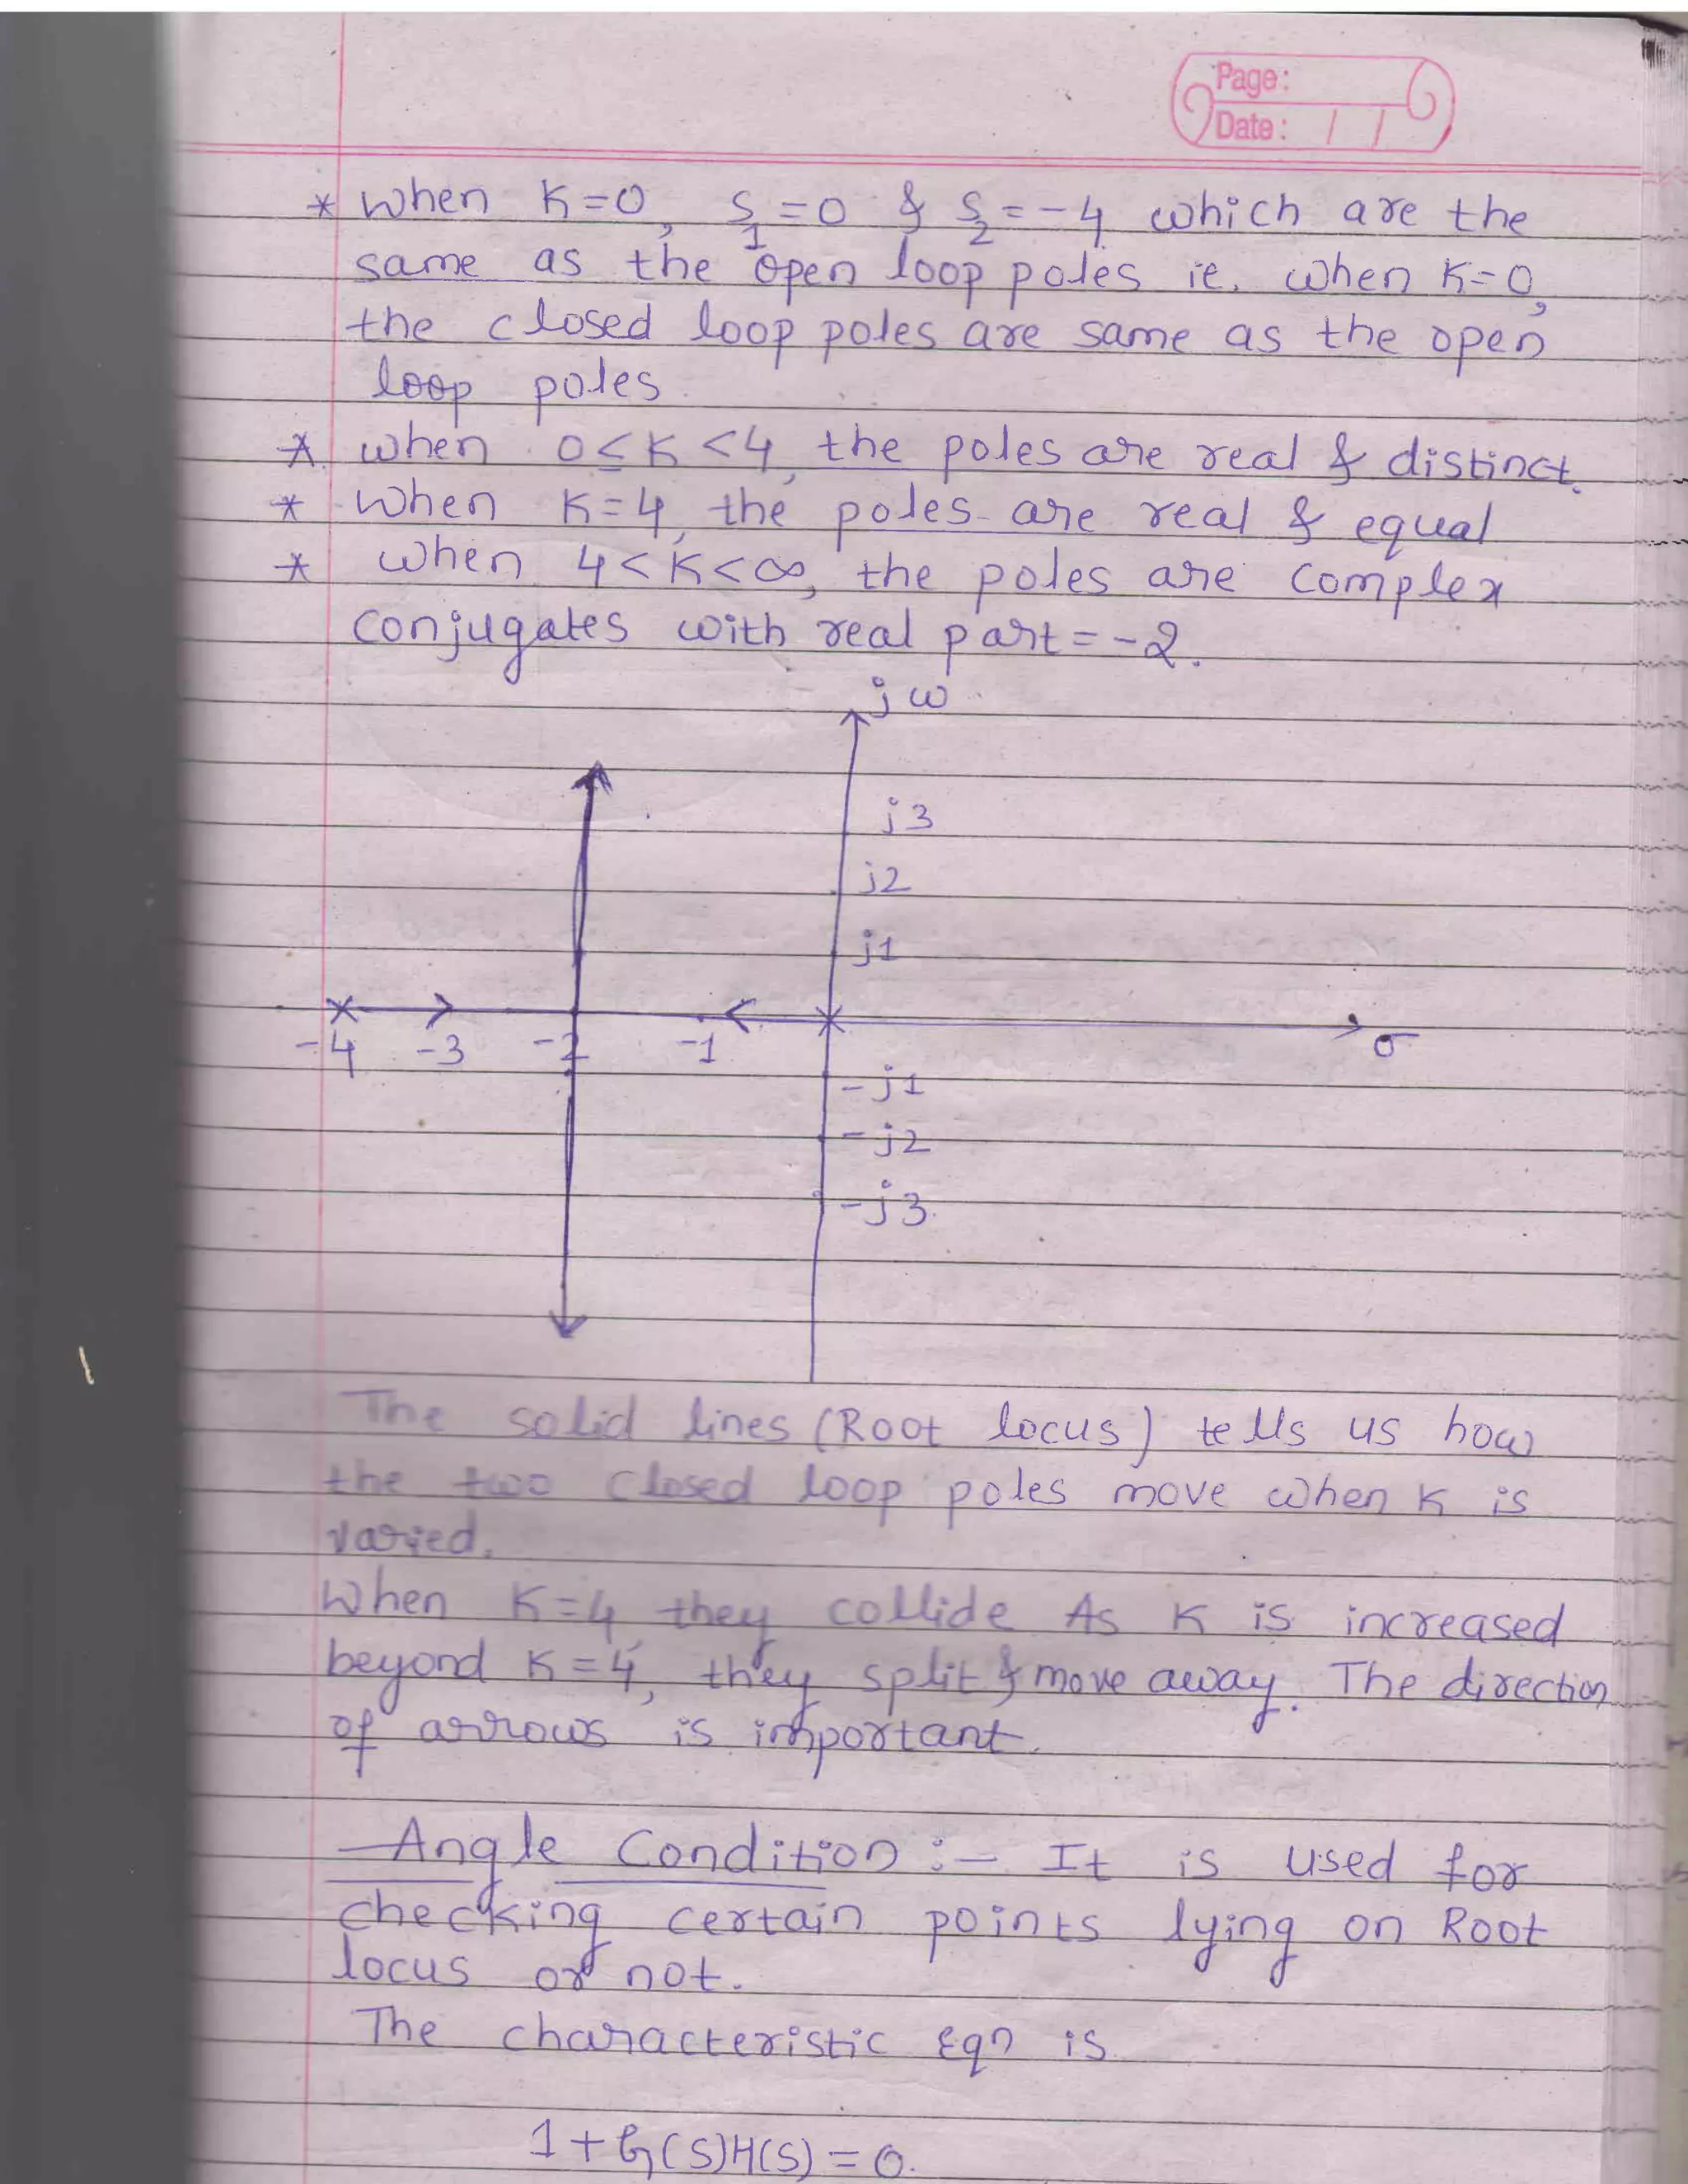 Page:
Date: / /
* When K=0, S1=0 & S2=-4 which are the
same as the open loop poles ie. when K=0,
the closed loop poles are same as the open
loop poles.
* when 0≤K<4, the poles are real & distinct.
* When K=4, the poles are real & equal
* when 4<K<∞, the poles are complex
conjugates with real part=-2.
jω
j3
j2
j1
-4 -3 -2 -1 σ
-j1
-j2
-j3
The solid lines (Root locus) tells us how
the two closed loop poles move when K is
varied.
When K=4, they collide As K is increased
beyond K=4, they split & move away. The direction
of arrows is important.
Angle Condition :- It is used for
checking certain points lying on Root
locus or not.
The characteristic Eqn is
1+G(S)H(S)=0.